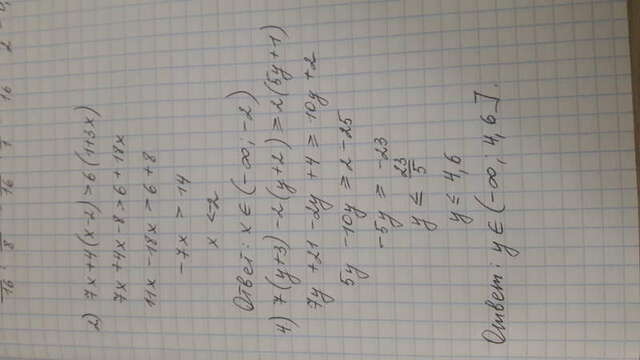 2) 7x+4(x-2)>6(1+3x)
7x+4x-8>6+18x
11x-18x>6+8
-7x>14
x<2
Ответ: x∈(-∞,-2)
4) 7(y+3)-2(y+2)≥2(5y+1)
7y+21-2y+4≥10y+2
5y-10y≥2-25
-5y≥-23
y≤23/5
y≤4,6
Ответ: y∈(-∞;4,6].